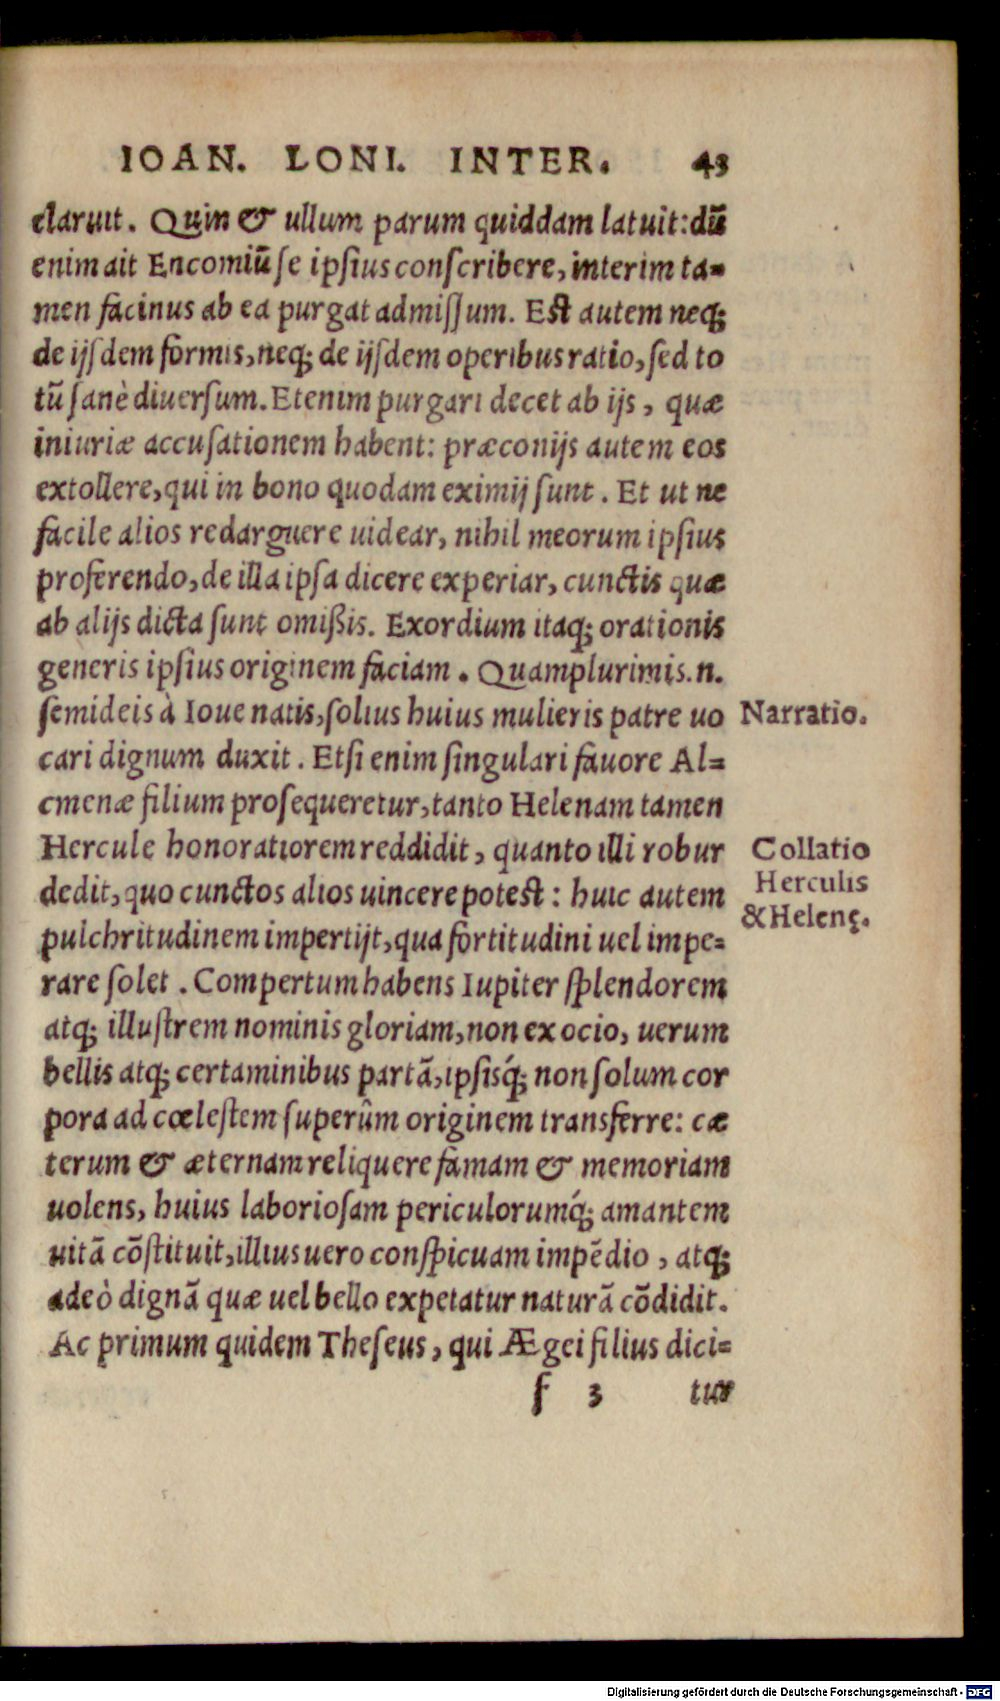 IOAN. LONI. INTER. 43
claruit. Quin & ullum parum quiddam latuit: dū
enim ait Encomiū se ipsius conscribere, interim ta=
men facinus ab ea purgat admissum. Est autem neq;
de ijsdem formis, neq; de ijsdem operibus ratio, sed to
tū sanè diuersum. Etenim purgari decet ab ijs, quæ
iniuriæ accusationem habent: præconijs autem eos
extollere, qui in bono quodam eximij sunt. Et ut ne
facile alios redarguere uidear, nihil meorum ipsius
proferendo, de illa ipsa dicere experiar, cunctis quæ
ab alijs dicta sunt omißis. Exordium itaq; orationis
generis ipsius originem faciam. Quamplurimis .n.
semideis à Ioue natis, solius huius mulieris patre uo
Narratio.
cari dignum duxit. Etsi enim singulari fauore Al=
cmenæ filium prosequeretur, tanto Helenam tamen
Hercule honoratiorem reddidit, quanto illi robur
Collatio
Herculis
& Helenę.
dedit, quo cunctos alios uincere potest: huic autem
pulchritudinem impertijt, qua fortitudini uel impe=
rare solet. Compertum habens Iupiter splendorem
atq; illustrem nominis gloriam, non ex ocio, uerum
bellis atq; certaminibus partā, ipsisq́; non solum cor
pora ad cœlestem superûm originem transferre: cæ
terum & æternam reliquere famam & memoriam
uolens, huius laboriosam periculorumq́; amantem
uitā cōstituit, illius uero conspicuam impēdio, atq;
adeò dignā quæ uel bello expetatur naturā cōdidit.
Ac primum quidem Theseus, qui Ægei filius dici=
f 3 tur
Digitalisierung gefördert durch die Deutsche Forschungsgemeinschaft - DFG